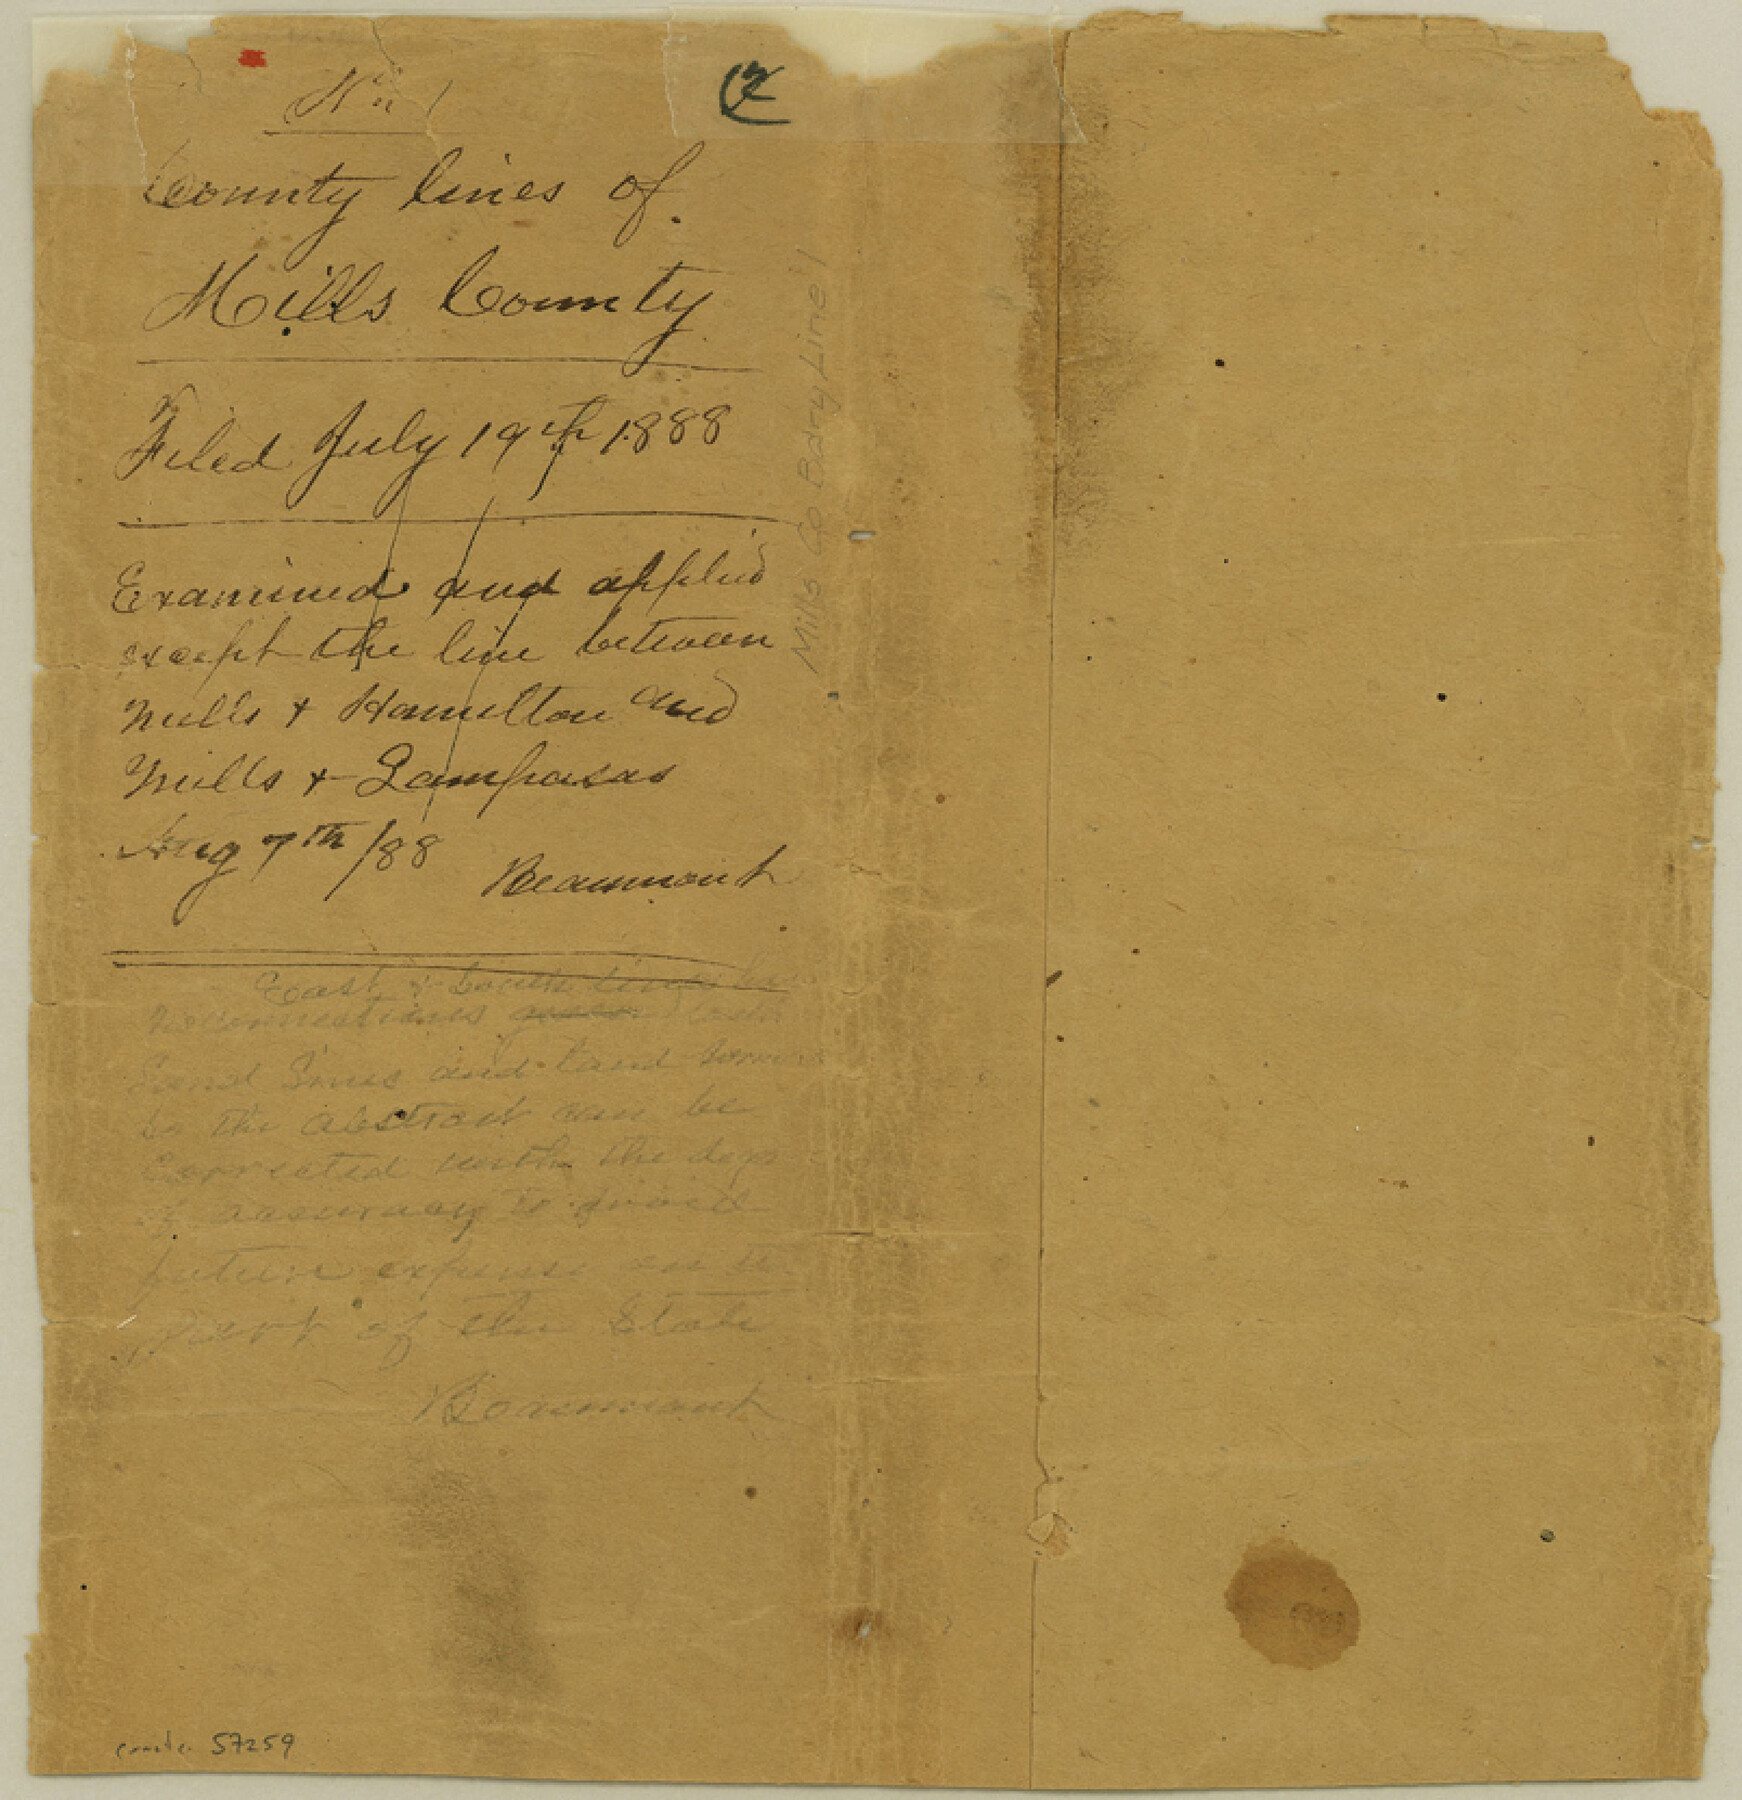 No 1
(2
County lines of
Mills County
Filed July 19th 1888
Examined and applied
except the line between
Mills & Hamilton and
Mills & Lampasas
Aug 7th /88
Beaumont
East & South
no connections given
and land
so the abstract can be
corrected with the
of accuracy to avoid
future expense on the
part of the State
Beaumont
Mills Co Bdry Line 1
counter 57259